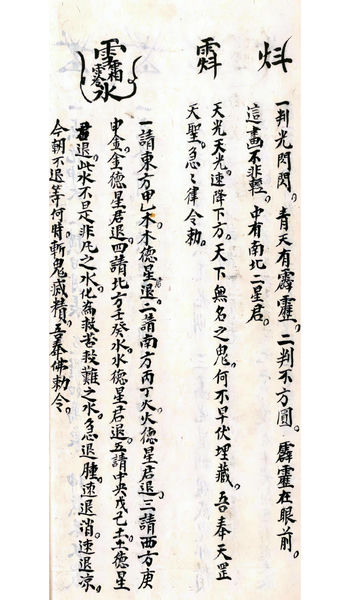 炓
一判光閃閃。青天有霹靈。二判不方圓。霹靈在眼前。
這畫不非輕。中有南北二星君。
天光天光。速降下方。天下無名之鬼。何不早伏埋藏。吾奉天罡
天聖。急々律令勅。
一請東方甲乙木。木德星君退。二請南方丙丁火。火德星君退。三請西方庚
申金。金德星君退。四請北方壬癸水。水德星君退。五請中央戊己土。土德星
君退。此水不是非凡之水。化為救苦救難之水。急退腫。速退消。速退凉。
今朝不退等何時。斬鬼滅精。吾奉佛勅令。